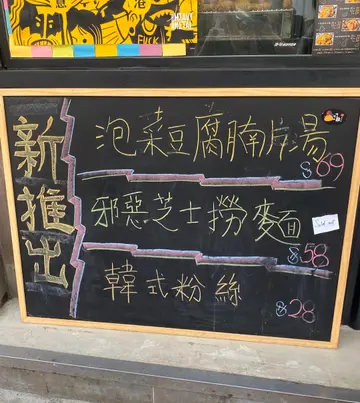 新推出
泡菜豆腐腩片湯
$69
邪惡芝士撈麵
Sold out
$58
韓式粉絲
$28